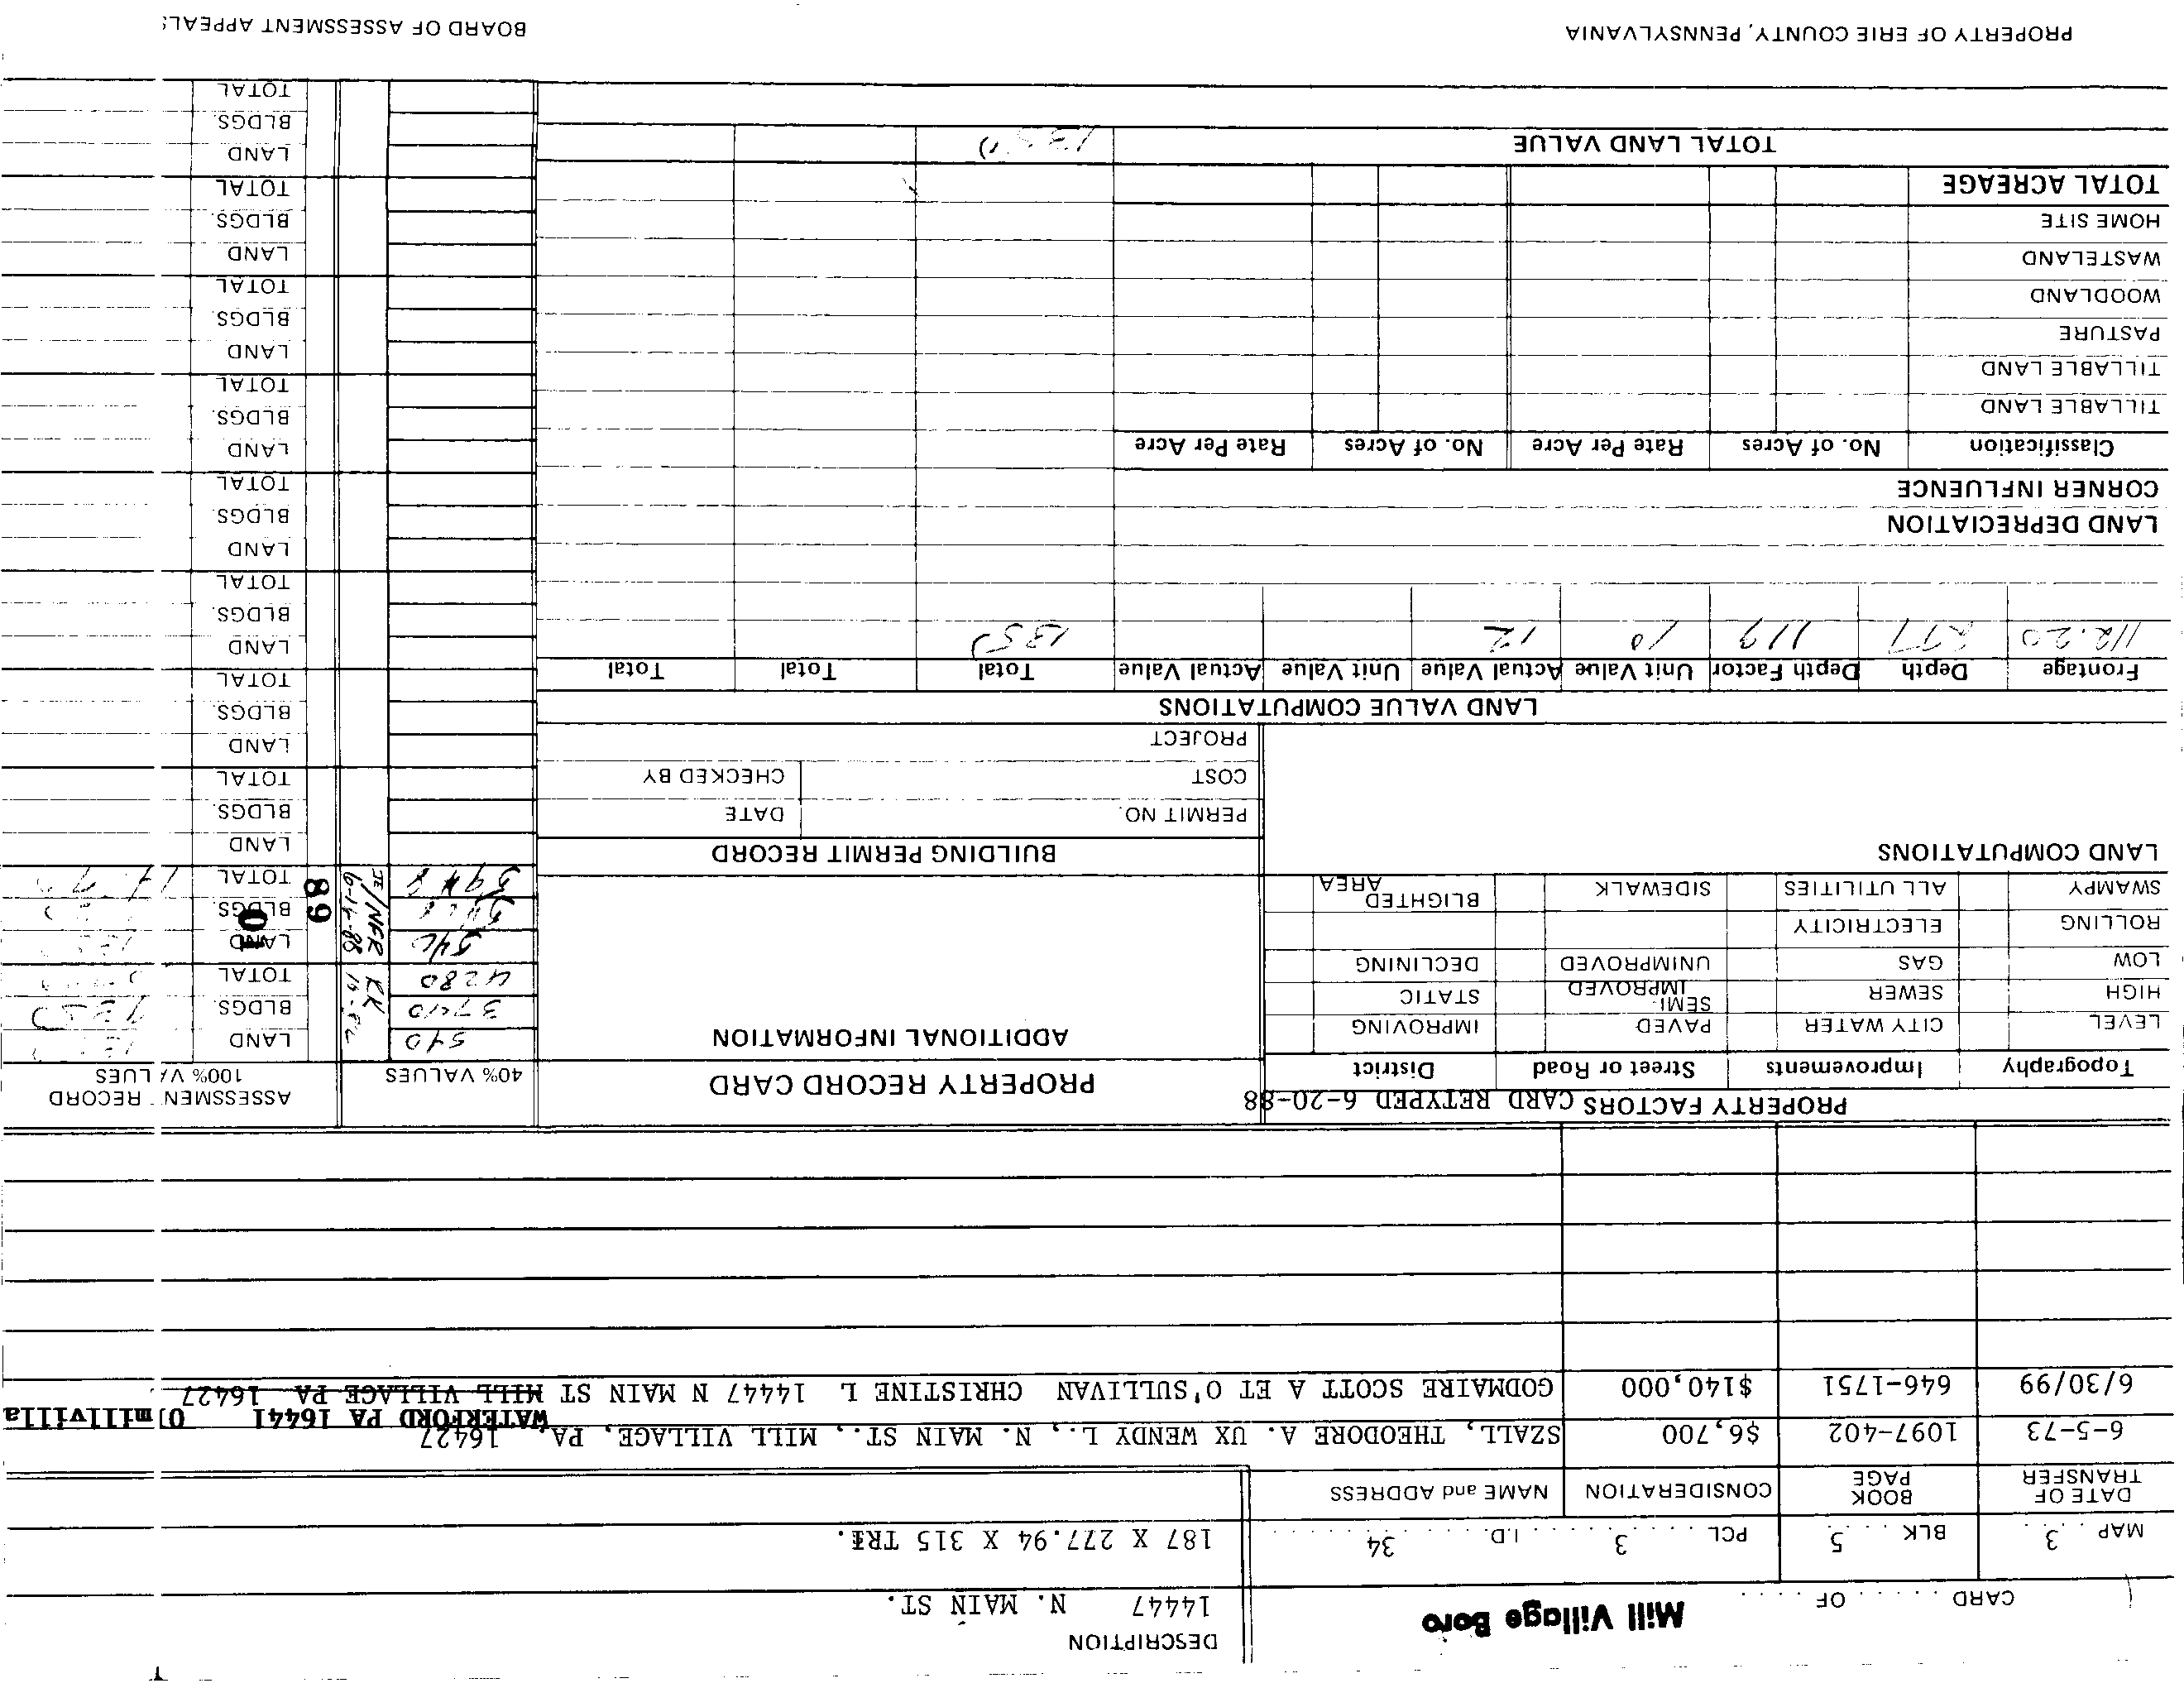 CARD . . . . . . OF . . . . . .
Mill Village Boro
DESCRIPTION
14447 N. MAIN ST.
MAP . . 3 . . BLK . . . 5 PCL . . . . . 3 . . . . . I.D. . . . . 34 . . . . .
187 X 277.94 X 315 TRI.
DATE OF TRANSFER BOOK PAGE CONSIDERATION NAME and ADDRESS
6-5-73 1097-402 $6,700 SZALL, THEODORE A. UX WENDY L., N. MAIN ST., MILL VILLAGE, PA 16427
WATERFORD PA 16441 01millvilla
6/30/99 646-1751 $140,000 GODMAIRE SCOTT A ET O'SULLIVAN CHRISTINE L 14447 N MAIN ST MILL VILLAGE PA 16427
PROPERTY FACTORS CARD RETYPED 6-20-88
PROPERTY RECORD CARD
40% VALUES
ASSESSMENT RECORD
100% VALUES
Topography Improvements Street or Road District
LEVEL CITY WATER PAVED IMPROVING
HIGH SEWER SEMI-IMPROVED STATIC
LOW GAS UNIMPROVED DECLINING
ROLLING ELECTRICITY
SWAMPY ALL UTILITIES SIDEWALK BLIGHTED AREA
ADDITIONAL INFORMATION
540 LAND
3740 BLDGS
4280 TOTAL
540 LAND
BLDGS
TOTAL
JE/NFR
6-14-88
89
01
LAND COMPUTATIONS
BUILDING PERMIT RECORD
PERMIT NO. DATE
COST CHECKED BY
PROJECT
LAND
BLDGS
TOTAL
LAND VALUE COMPUTATIONS
LAND
BLDGS
TOTAL
Frontage Depth Depth Factor Unit Value Actual Value Unit Value Actual Value Total Total Total
112.20 277 119 10 12 1350
LAND
BLDGS
TOTAL
LAND DEPRECIATION
CORNER INFLUENCE
LAND
BLDGS
TOTAL
Classification No. of Acres Rate Per Acre No. of Acres Rate Per Acre
TILLABLE LAND
TILLABLE LAND
PASTURE
WOODLAND
WASTELAND
HOME SITE
TOTAL ACREAGE
TOTAL LAND VALUE 1350
LAND
BLDGS.
TOTAL
LAND
BLDGS
TOTAL
LAND
BLDGS.
TOTAL
LAND
BLDGS
TOTAL
PROPERTY OF ERIE COUNTY, PENNSYLVANIA
BOARD OF ASSESSMENT APPEALS